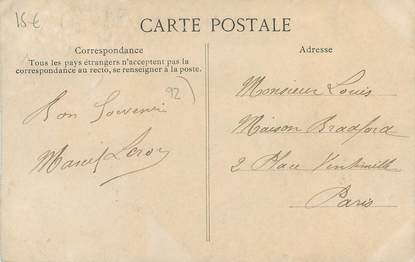 15€
CARTE POSTALE
Correspondance
Tous les pays étrangers n'acceptent pas la
correspondance au recto, se renseigner à la poste.
92)
Bon Souvenir
Marcel Leroy
Adresse
Monsieur Louis
Maison Bradford
2 Place Vintimille
Paris